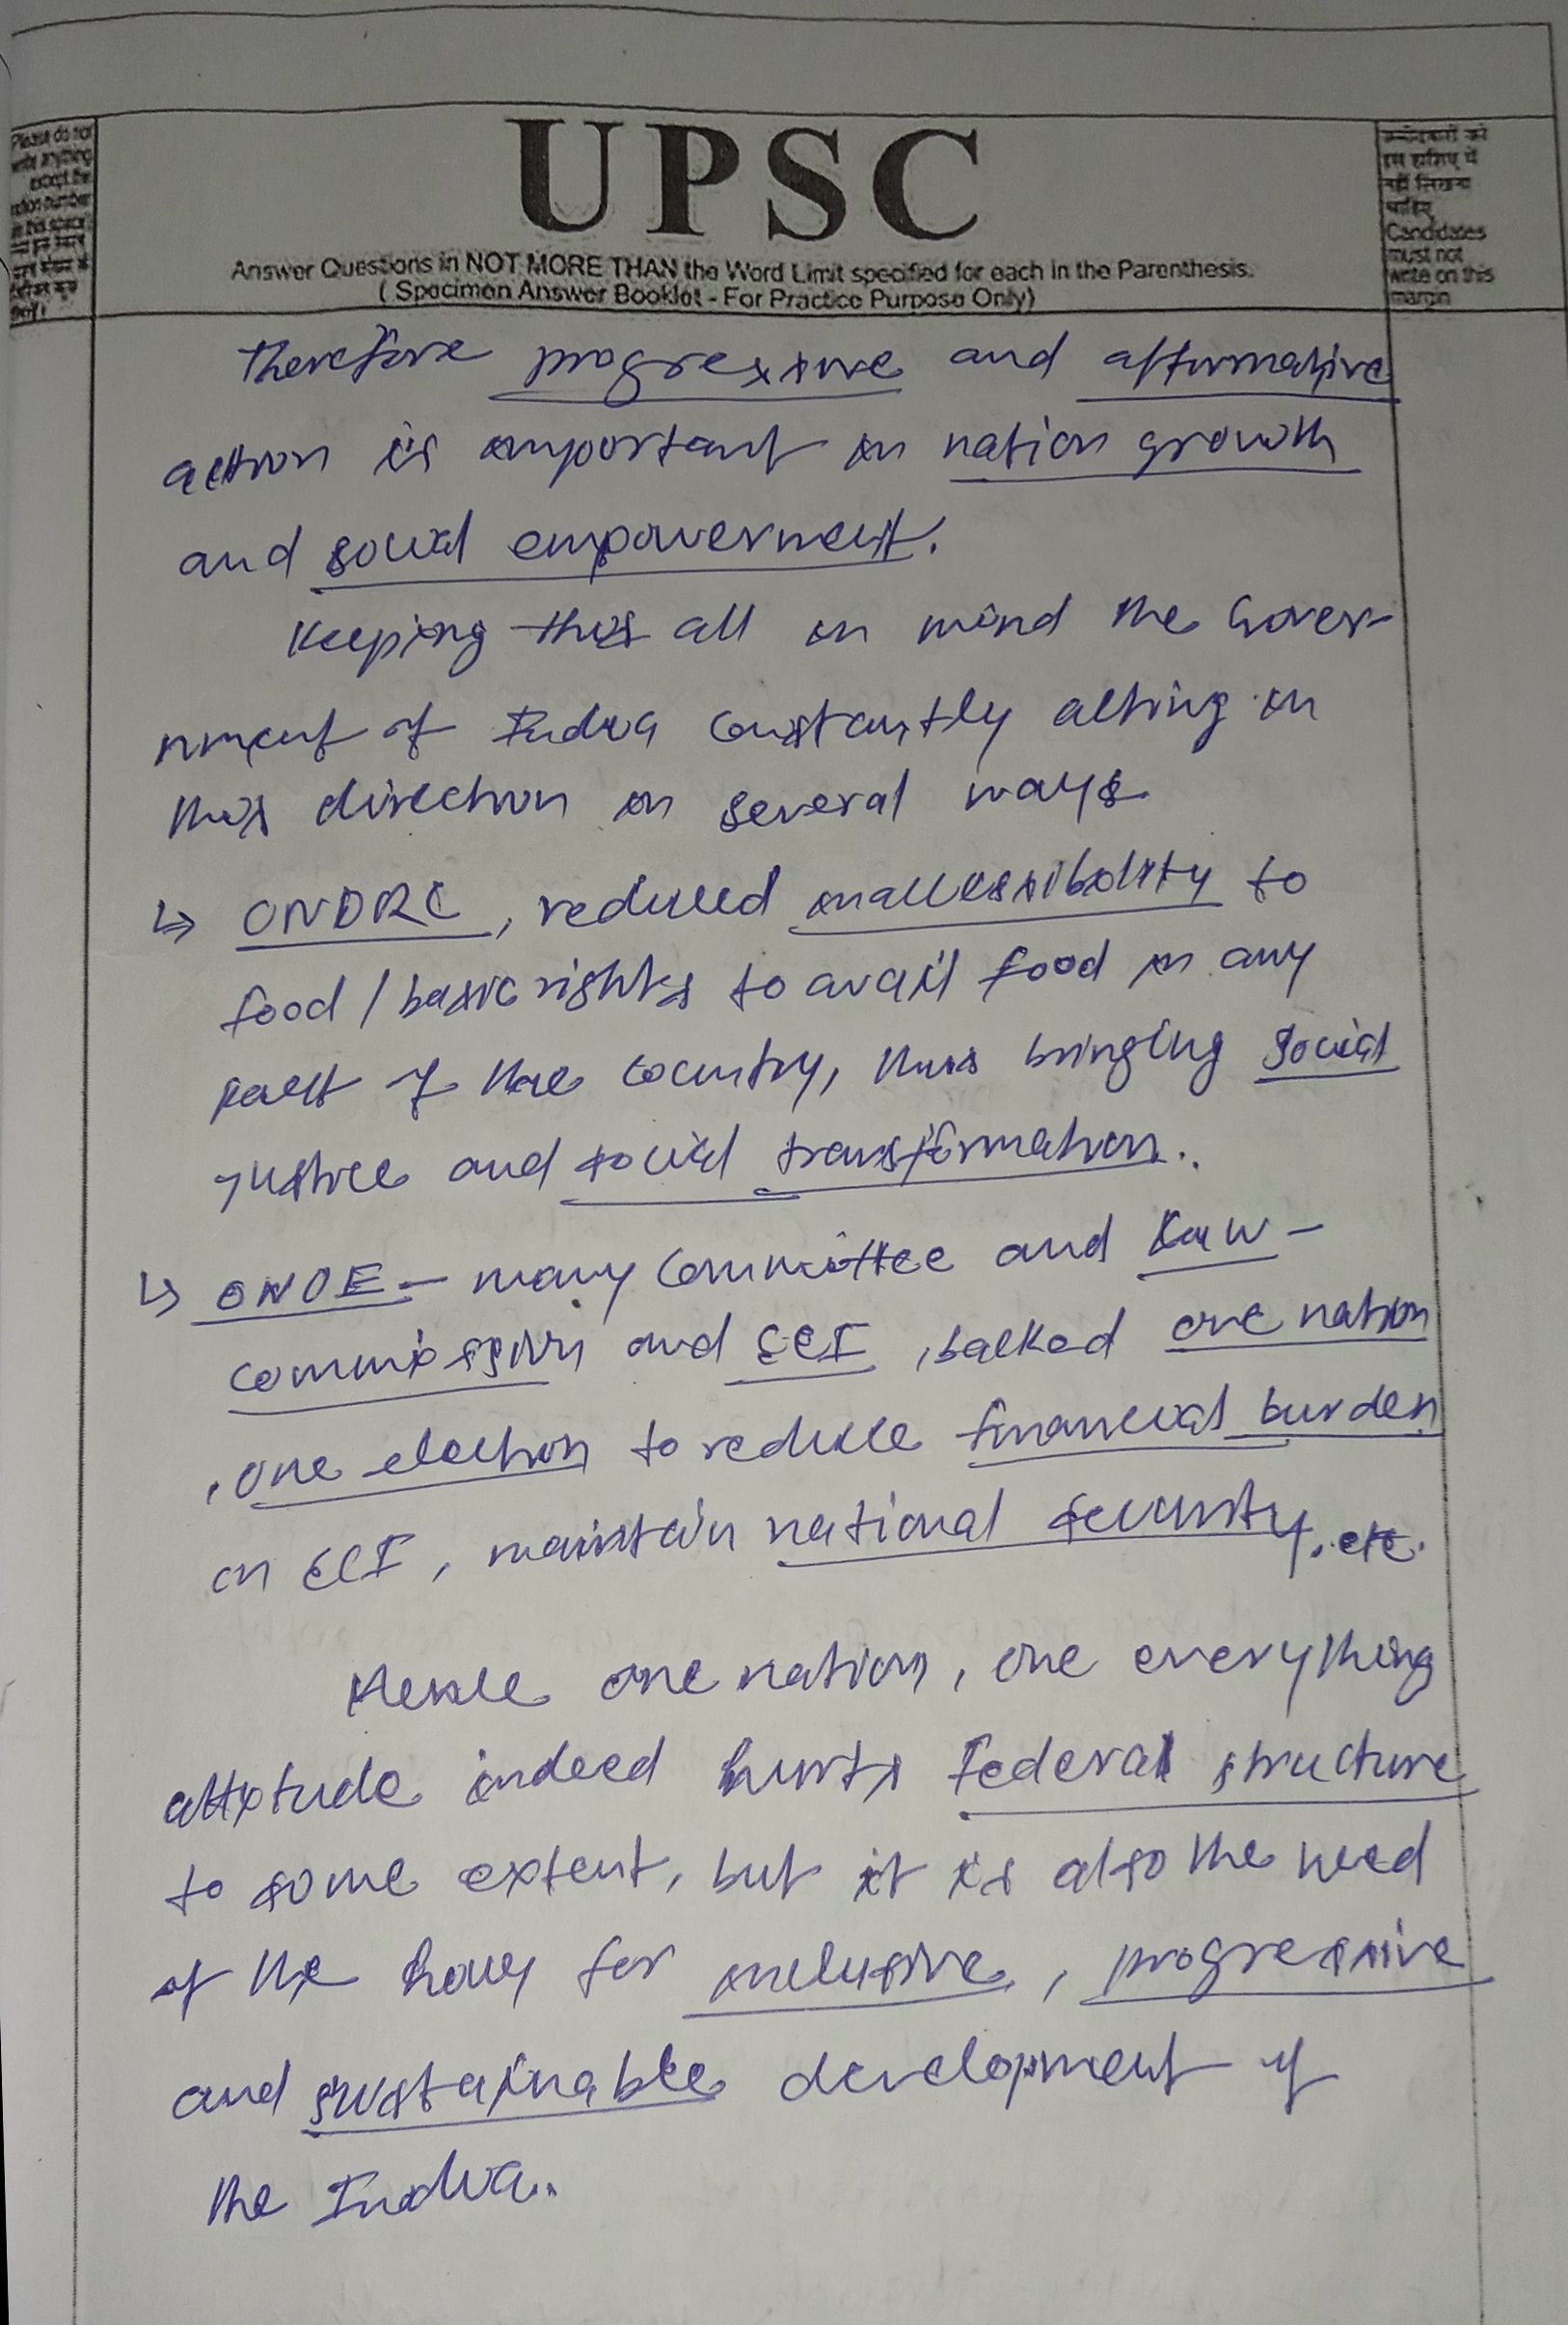 UPSC
Answer Questions in NOT MORE THAN the Word Limit specified for each in the Parenthesis.
( Specimen Answer Booklet - For Practice Purpose Only)
Please do not
write anything
except the
question number
in this space
उम्मीदवारों को
इस हाशिए में
नहीं लिखना
चाहिए
Candidates
must not
write on this
margin
therefore progressive and affirmative
action is important in nation growth
and social empowerment.
Keeping this all in mind the Gover-
nment of India constantly acting in
this direction in several ways
↳ ONDRC, reduced inaccessibility to
food / basic rights to avail food in any
part of the country, thus bringing social
justice and social transformation.
↳ ONOE - many Committee and Law-
commission and ECI, backed one nation
, one election to reduce financial burden
on ECI, maintain national security, etc.
Hence one nation, one everything
attitude indeed hurts Federal structure
to some extent, but it is also the need
of the hour for inclusive, progressive
and sustainable development of
the India.